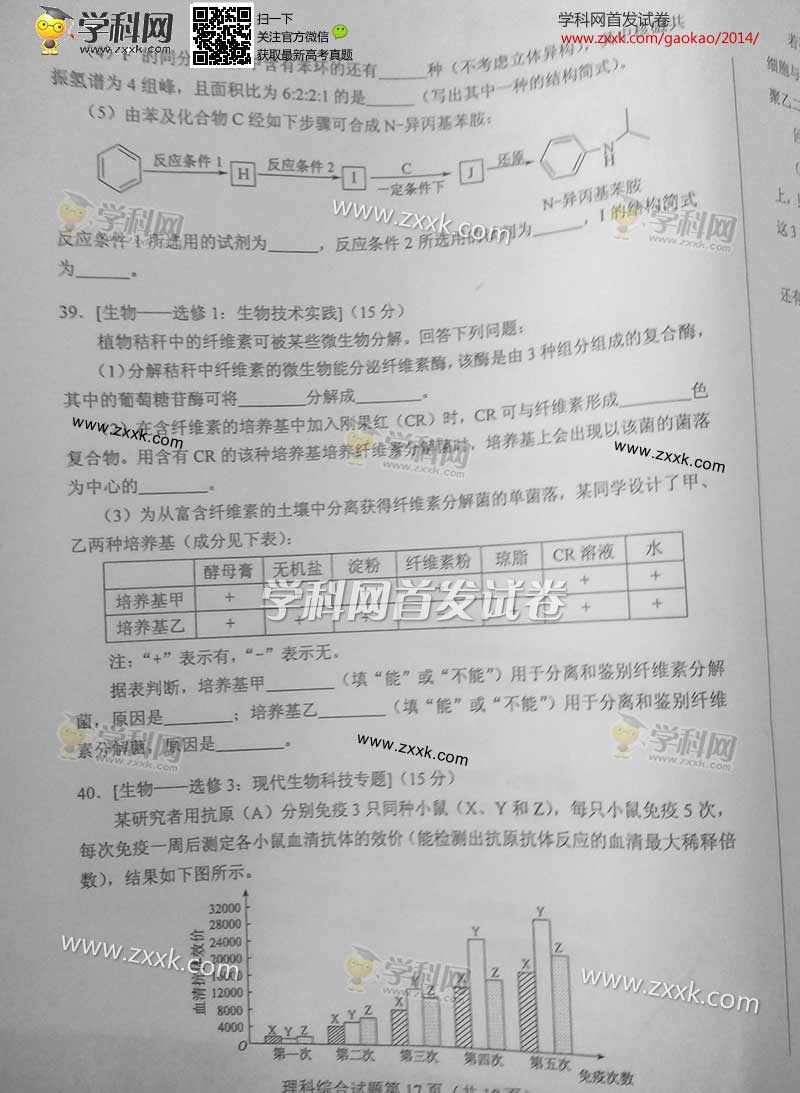 学科网
www.zxxk.com
扫一下
关注官方微信
获取最新高考真题
学科网首发试卷
www.zxxk.com/gaokao/2014/
的同分 含有苯环的还有______种(不考虑立体异构),
振氢谱为4组峰,且面积比为6:2:2:1的是______(写出其中一种的结构简式)。
(5)由苯及化合物C经如下步骤可合成N-异丙基苯胺:
反应条件1 H 反应条件2 I C 一定条件下 J 还原 N H
N-异丙基苯胺
反应条件1所选用的试剂为______,反应条件2所选用的试剂为______,I的结构简式
为______。
39.[生物——选修1:生物技术实践](15分)
植物秸秆中的纤维素可被某些微生物分解。回答下列问题:
(1)分解秸秆中纤维素的微生物能分泌纤维素酶,该酶是由3种组分组成的复合酶,
其中的葡萄糖苷酶可将______分解成______。
(2)在含纤维素的培养基中加入刚果红(CR)时,CR可与纤维素形成______色
复合物。用含有CR的该种培养基培养纤维素分解菌时,培养基上会出现以该菌的菌落
为中心的______。
(3)为从富含纤维素的土壤中分离获得纤维素分解菌的单菌落,某同学设计了甲、
乙两种培养基(成分见下表):
酵母膏 无机盐 淀粉 纤维素粉 琼脂 CR溶液 水
培养基甲 + + +
培养基乙 + + +
学科网首发试卷
注:“+”表示有,“-”表示无。
据表判断,培养基甲______(填“能”或“不能”)用于分离和鉴别纤维素分解
菌,原因是______;培养基乙______(填“能”或“不能”)用于分离和鉴别纤维
素分解菌,原因是______。
40.[生物——选修3:现代生物科技专题](15分)
某研究者用抗原(A)分别免疫3只同种小鼠(X、Y和Z),每只小鼠免疫5次,
每次免疫一周后测定各小鼠血清抗体的效价(能检测出抗原抗体反应的血清最大稀释倍
数),结果如下图所示。
血清抗体效价
32000
28000
24000
20000
16000
12000
8000
4000
O
X Y Z X Y Z X Y Z X Y Z X Y Z
第一次 第二次 第三次 第四次 第五次
免疫次数
理科综合试题第17页(共18页)
细胞与
聚乙二
上,
这3
还有